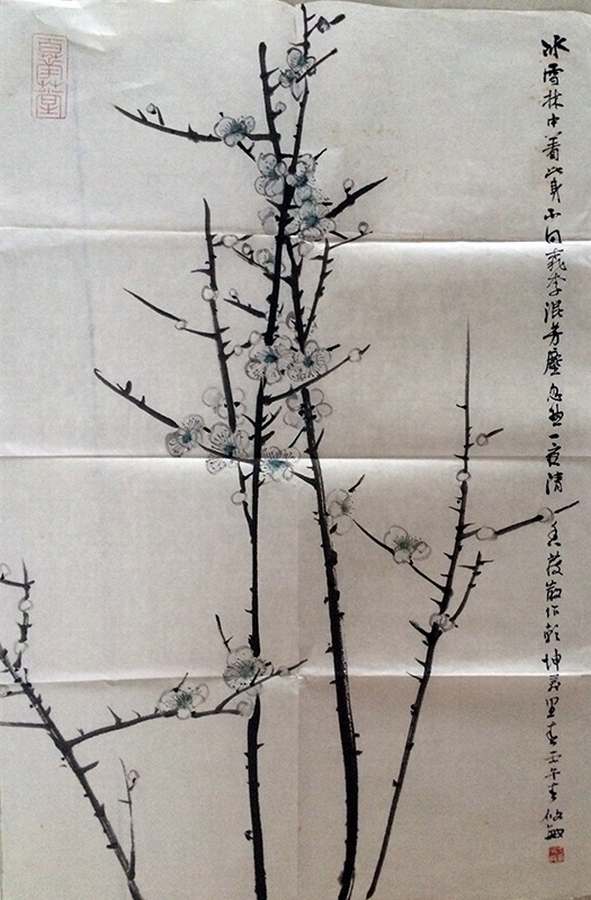 冰雪林中著此身不同桃李混芳塵忽然一夜清香發散作乾坤萬里春丙午春敏